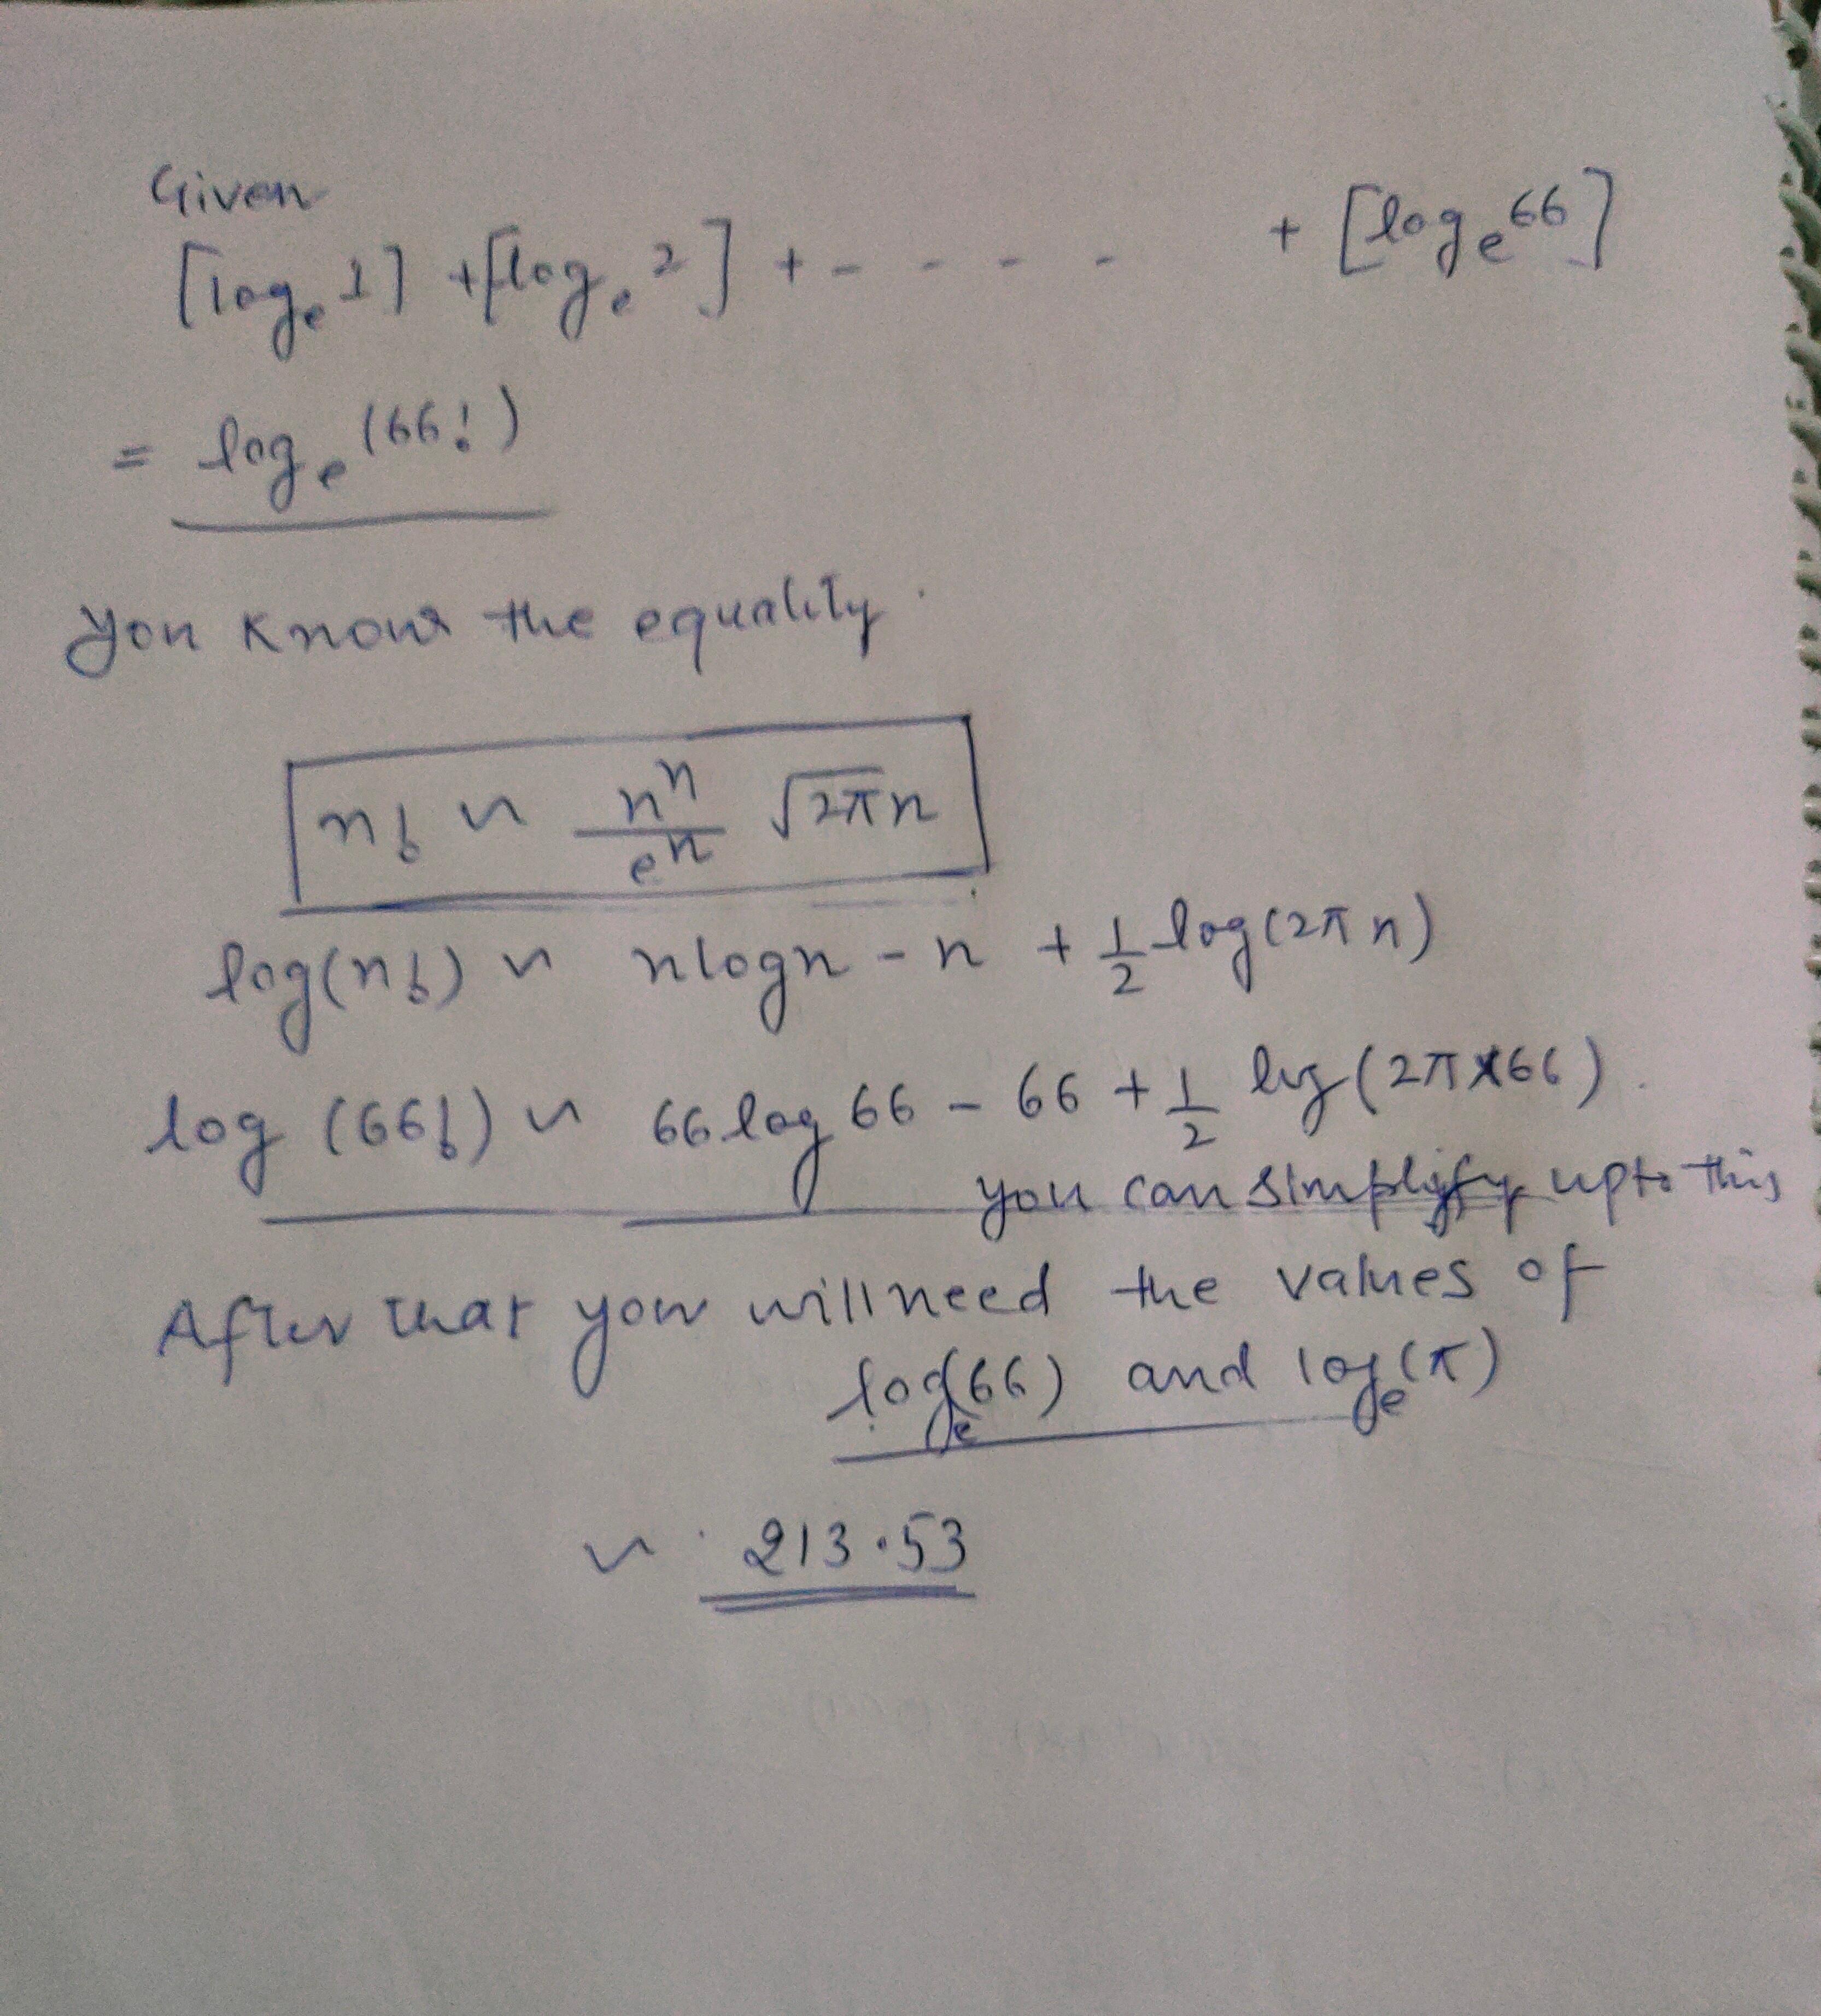 Given
[logₑ 1] + [logₑ 2] + - - - - + [logₑ 66]
= logₑ (66!)
you know the equality.
n! ~ nⁿ/eⁿ √2πn
log(n!) ~ nlogn - n + 1/2 log(2πn)
log (66!) ~ 66 log 66 - 66 + 1/2 log (2π×66).
you can simplify upto this
After that you will need the values of
logₑ(66) and logₑ(π)
~ 213.53